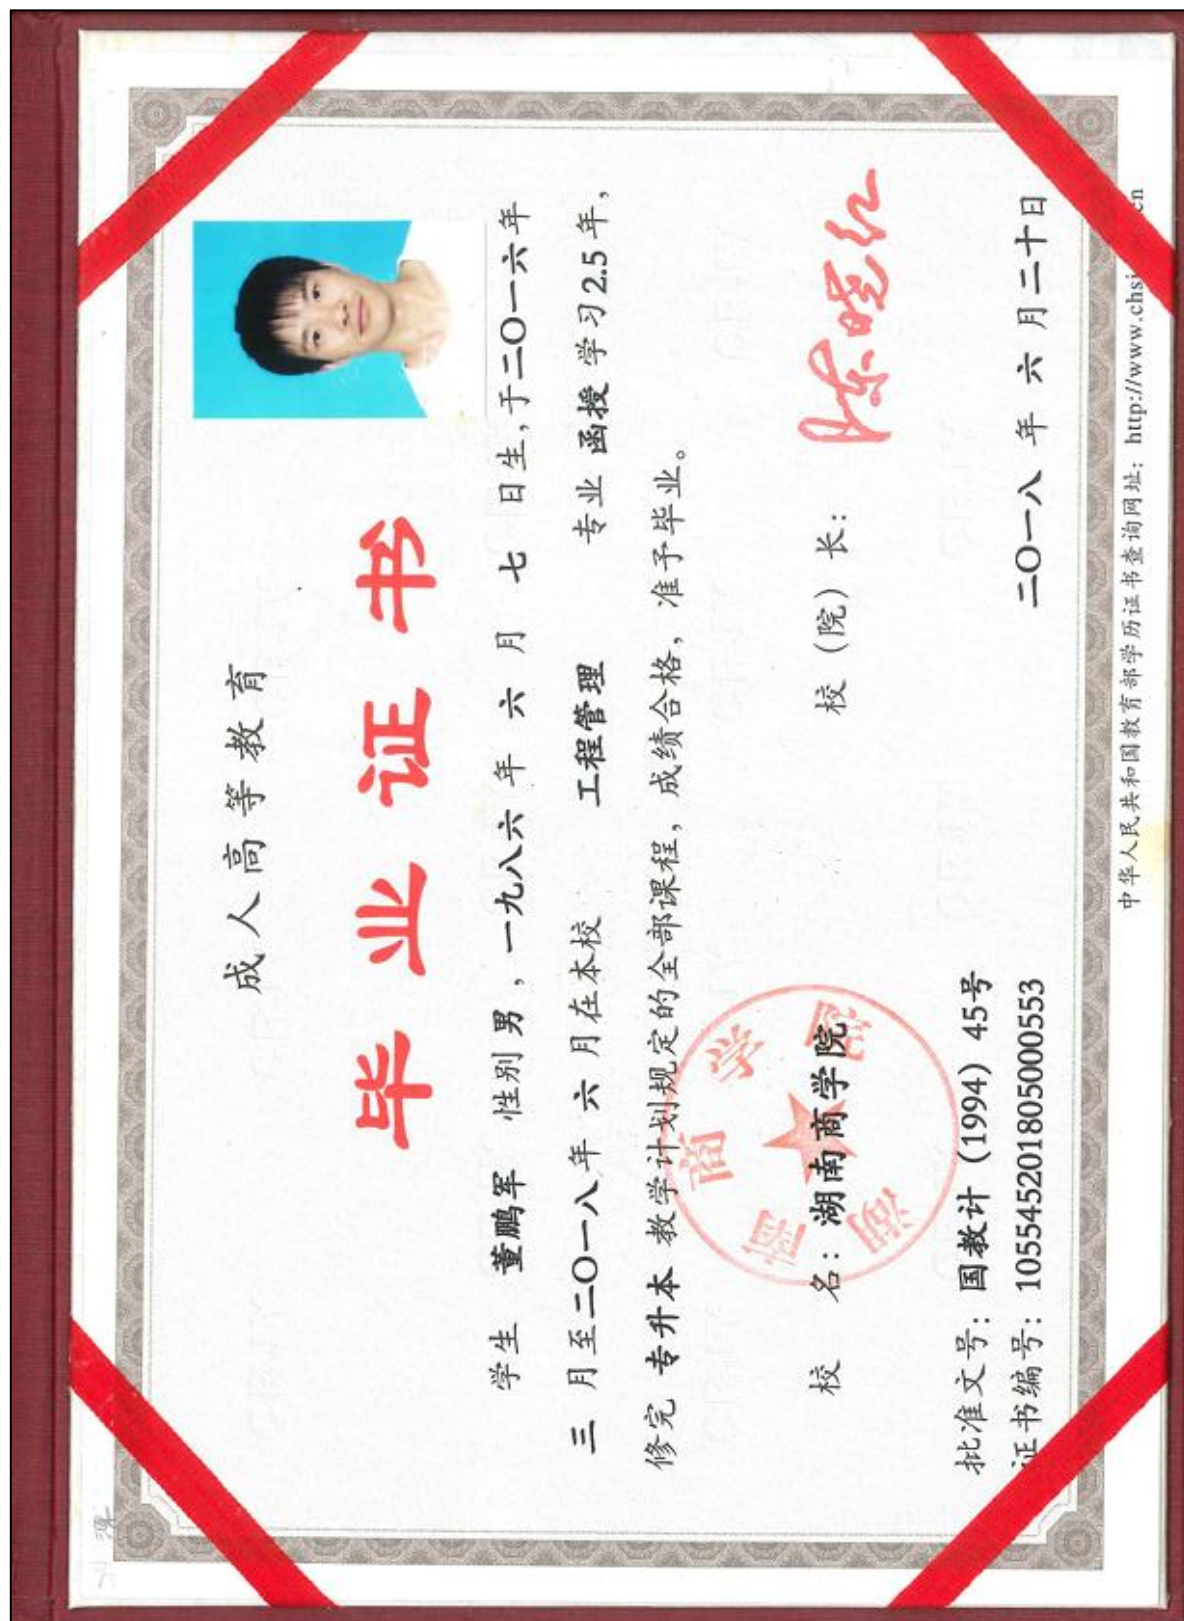 成人高等教育
毕业证书
学生 董鹏军 性别男，一九八六年 六 月 七 日生，于二〇一六年
三 月至二〇一八年 六 月在本校 工程管理 专业 函授 学习2.5年，
修完 专升本 教学计划规定的全部课程，成绩合格，准予毕业。
校 名：湖南商学院
湖南商学院
校（院）长：
陈晓红
批准文号：国教计（1994）45号
证书编号：105545201805000553
二〇一八 年 六 月 二十 日
中华人民共和国教育部学历证书查询网址：http://www.chsi cn